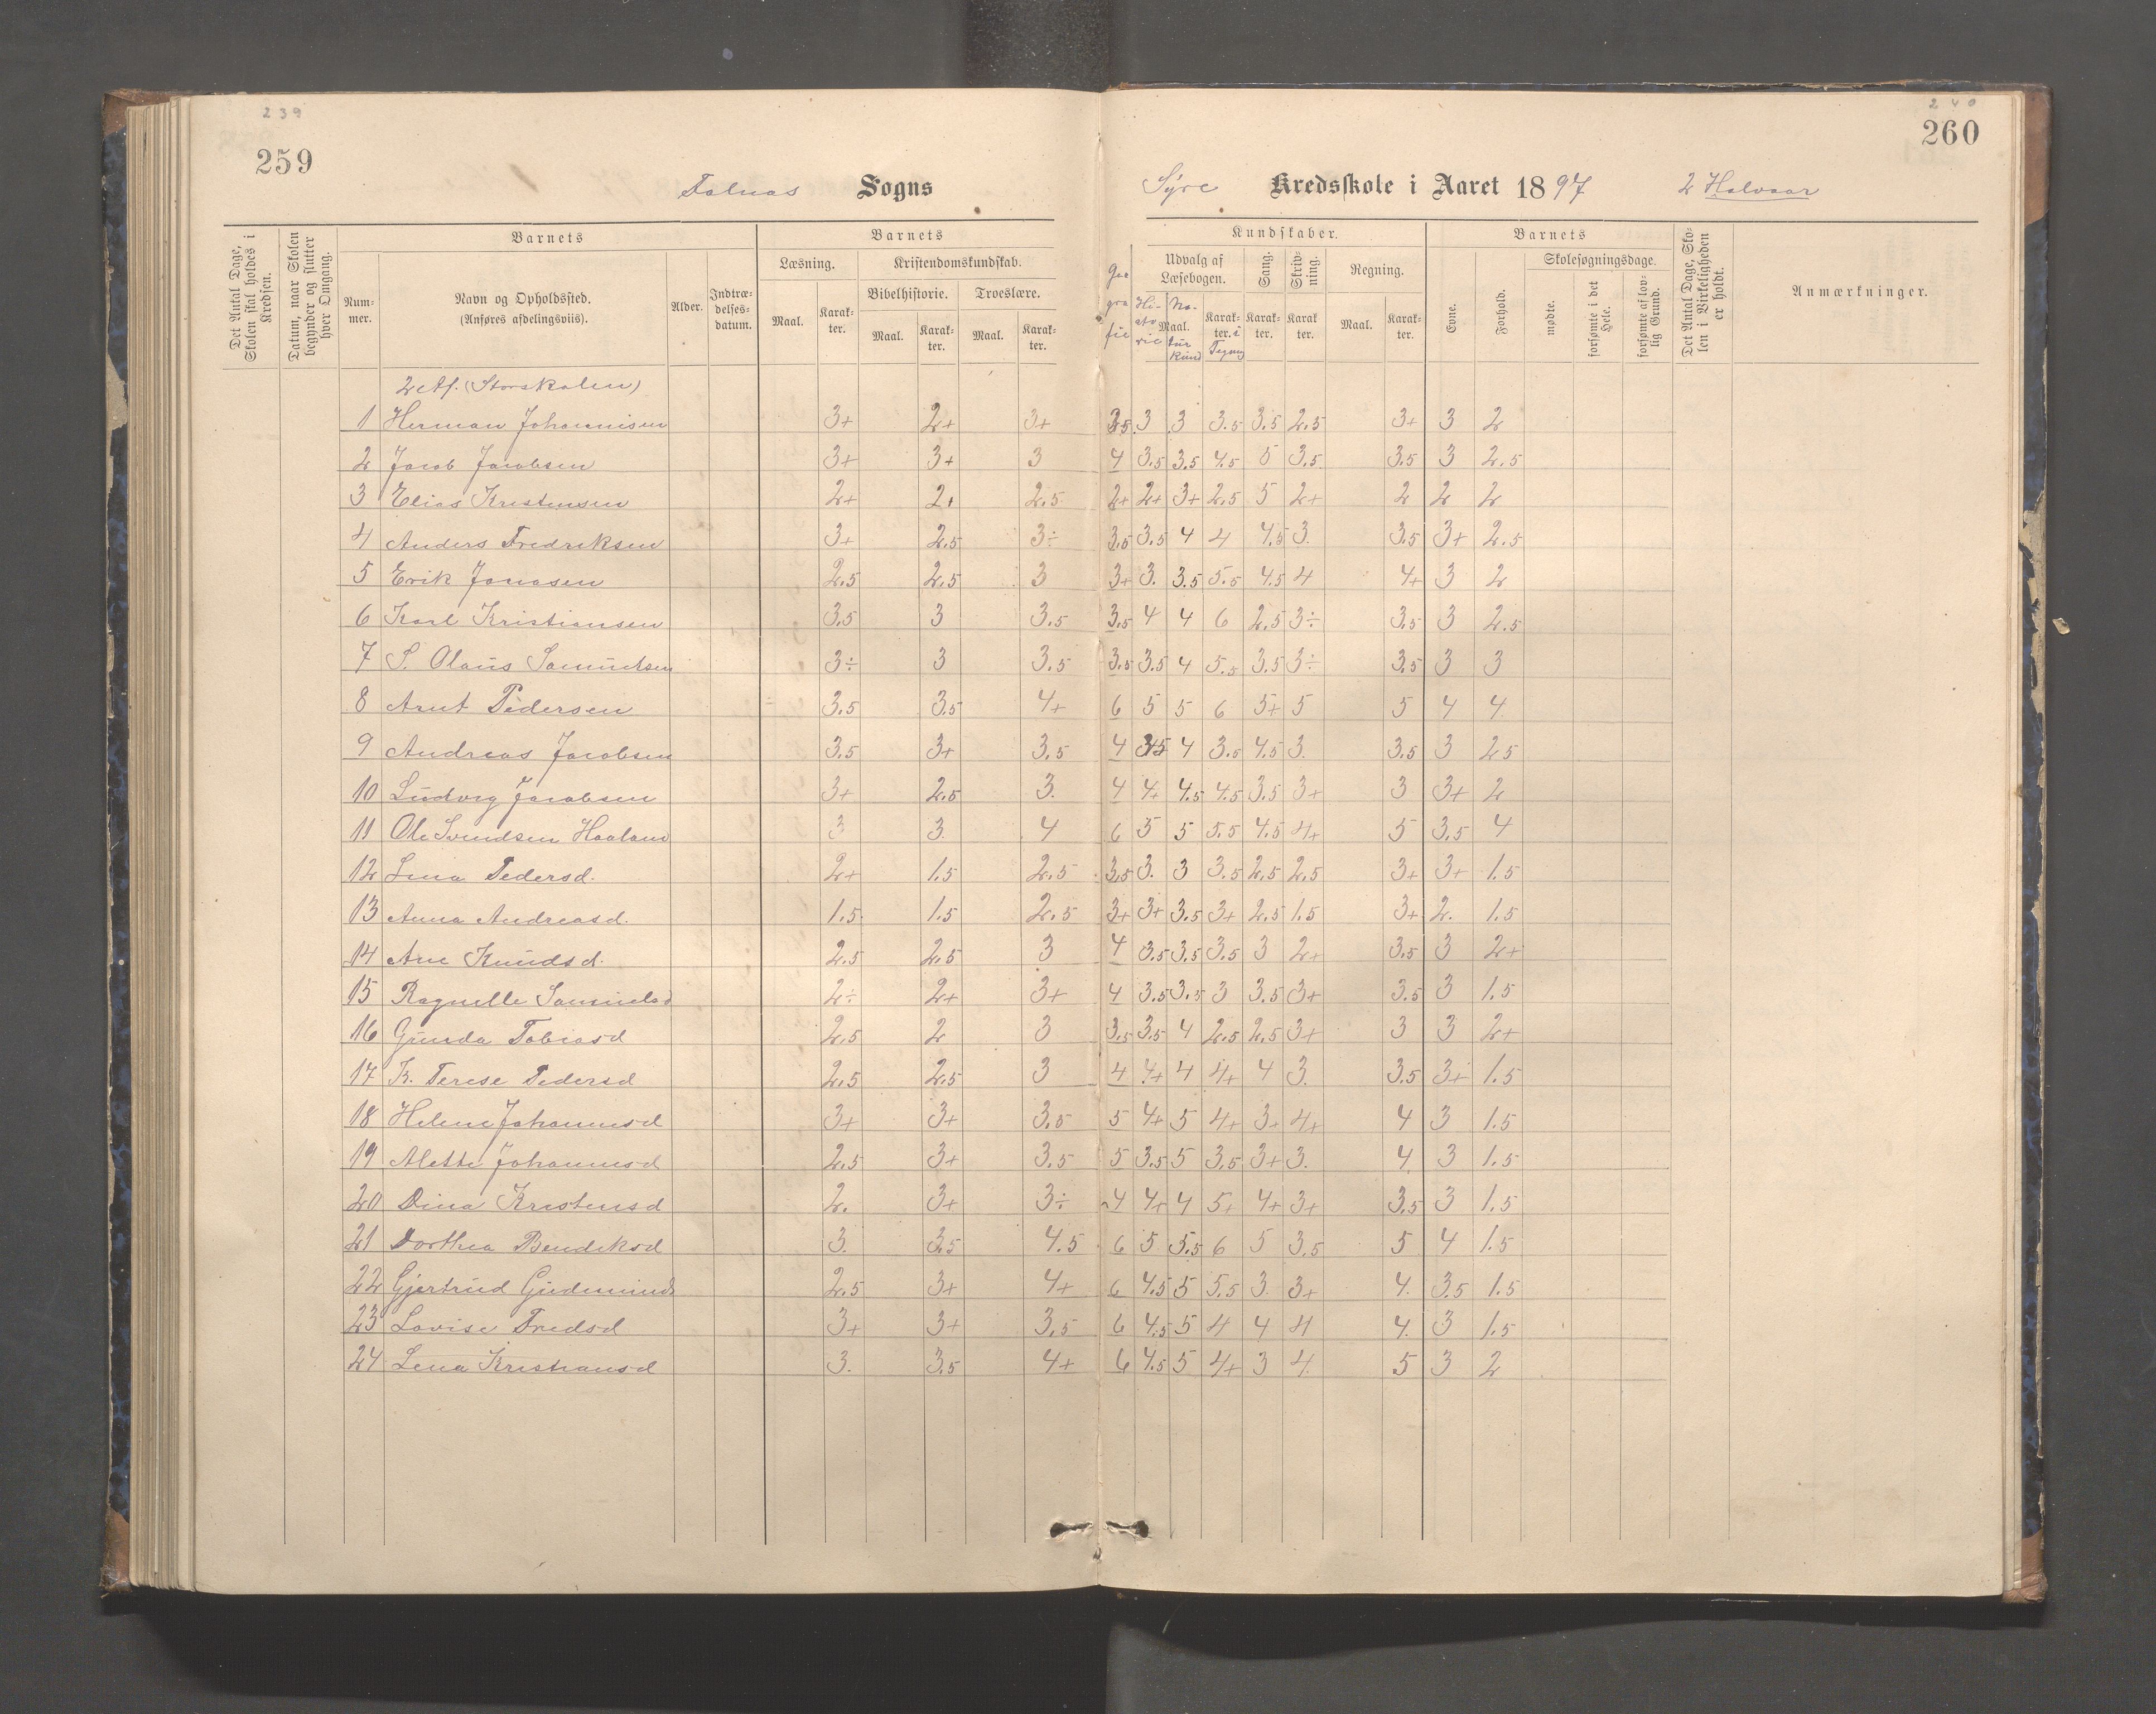 239
240
259
260
Falnæs Sogns
Syre Kredsskole i Aaret 1897 2 Halvaar
Det Antal Dage, Skolen skal holdes i Kredsen.
Datum, naar Skolen begynder og slutter hver Omgang.
Barnets
Nummer.
Navn og Opholdssted.
(Anføres afdelingsviis).
Alder.
Indtrædelsesdatum.
Barnets
Læsning.
Maal.
Karakter.
Kristendomskundskab.
Bibelhistorie.
Maal.
Karakter.
Troeslære.
Maal.
Karakter.
Kundskaber.
Geografie
Udvalg af Læsebogen.
Historie
Maal.
Naturkund
Karakter. i Tegning
Sang.
Karakter.
Skrivning.
Karakter.
Regning.
Maal.
Karakter.
Barnets
Evne.
Forhold.
Skolesøgningsdage.
mødte.
forsømte i det Hele.
forsømte af lovlig Grund.
Det Antal Dage, Skolen i Virkeligheden er holdt.
Anmærkninger.
2 Af. (Storskolen)
1 Herman Johannisen 3+ 2+ 3+ 3.5 3 3 3.5 3.5 2.5 3+ 3 2
2 Jacob Jacobsen 3+ 3+ 3 4 3.5 3.5 4.5 5 3.5 3.5 3 2.5
3 Elias Kristensen 2+ 2+ 2.5 2+ 2+ 3+ 2.5 5 2+ 2 2 2
4 Anders Fredriksen 3+ 2.5 3÷ 3.5 3.5 4 4 4.5 3. 3.5 3+ 2.5
5 Erik Jonasen 2.5 2.5 3 3+ 3. 3.5 5.5 4.5 4 4+ 3 2
6 Karl Kristiansen 3.5 3 3.5 3.5 4 4 6 2.5 3÷ 3.5 3 2.5
7 S. Olaus Samuelsen 3÷ 3 3.5 3.5 3.5 4 5.5 3.5 3÷ 3.5 3 3
8 Arnt Pedersen 3.5 3.5 4+ 6 5 5 6 5+ 5 5 4 4
9 Andreas Jacobsen 3.5 3+ 3.5 4 3.5 4 3.5 4.5 3. 3.5 3 2.5
10 Ludvig Jacobsen 3+ 2.5 3. 4 4+ 4.5 4.5 3.5 3+ 3 3+ 2
11 Ole Svendsen Haaland 3 3. 4 6 5 5 5.5 4.5 4+ 5 3.5 4
12 Lina Pedersd. 2+ 1.5 2.5 3.5 3. 3 3.5 2.5 2.5 3+ 3+ 1.5
13 Anna Andreasd. 1.5 1.5 2.5 3+ 3+ 3.5 3+ 2.5 1.5 3+ 2. 1.5
14 Ane Knudsd. 2.5 2.5 3 4 3.5 3.5 3.5 3 2+ 3.5 3 2+
15 Ragnille Samuelsd 2÷ 2+ 3+ 4 3.5 3.5 3 3.5 3+ 3.5 3 1.5
16 Gunda Tobiasd 2.5 2 3 3.5 3.5 4 2.5 2.5 3+ 3 3 2+
17 K. Terese Pedersd 2.5 2.5 3 4 4+ 4 4+ 4 3. 3.5 3+ 1.5
18 Helene Johannesd 3+ 3+ 3.5 5 4+ 5 4+ 3+ 4+ 4 3 1.5
19 Alette Johannesd 2.5 3+ 3.5 5 3.5 5 3.5 3+ 3. 4 3 1.5
20 Dina Kristensd 2. 3+ 3÷ 4 4+ 4 5+ 4+ 3+ 3.5 3 1.5
21 Dorthea Bendiksd 3. 3.5 4.5 6 5 5.5 6 5 3.5 5 4 1.5
22 Gjertrud Gudmunds 2.5 3+ 4+ 6 4.5 5 5.5 3. 3+ 4. 3.5 1.5
23 Lovise Fredsd 3+ 3+ 3.5 6 4.5 5 4 4 4 4. 3 1.5
24 Lena Kristiansd 3. 3.5 4+ 6 4.5 5 4+ 3 4. 5 3 2